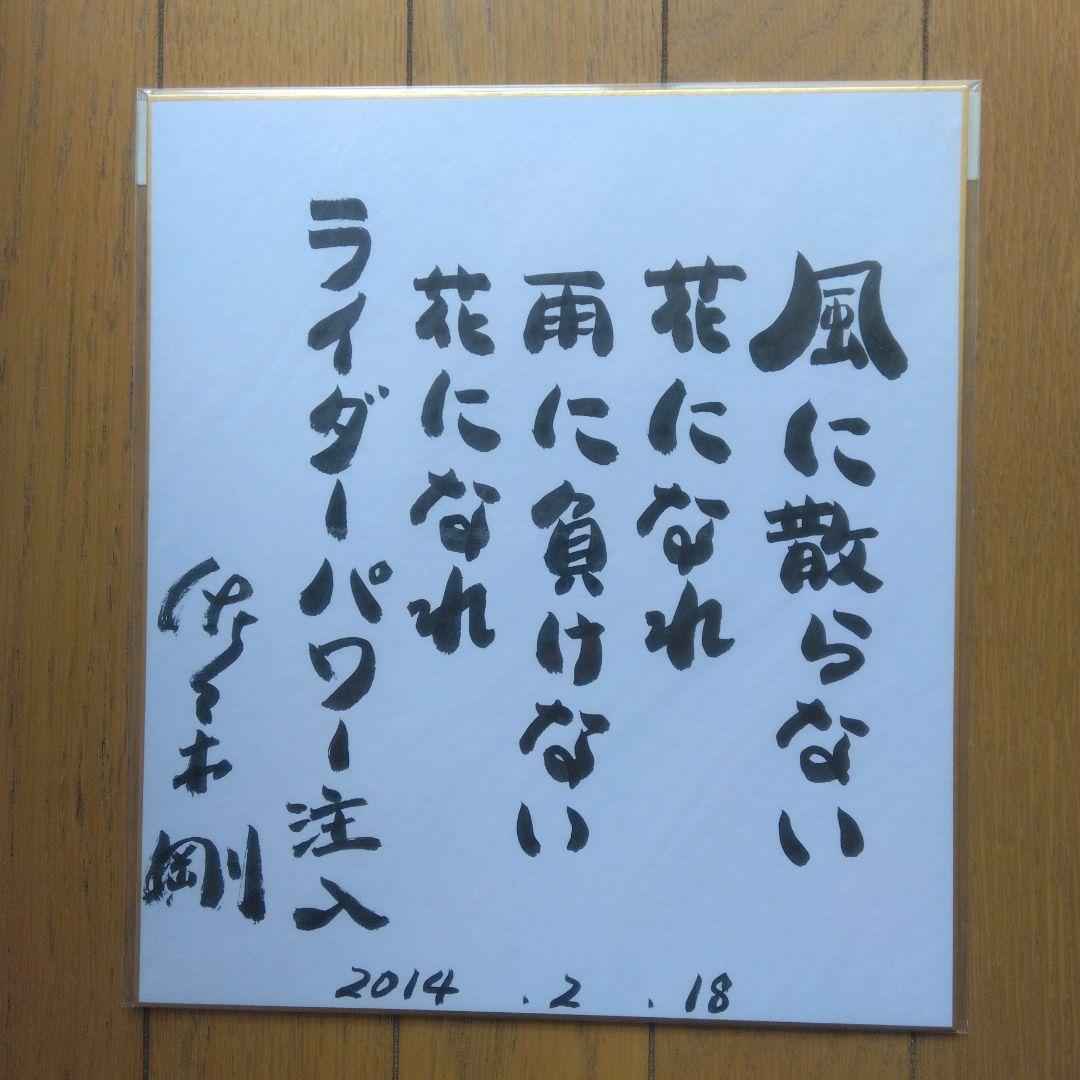 風に散らない
花になれ
雨に負けない
花になれ
ライダーパワー注入
佐々木剛
2014.2.18